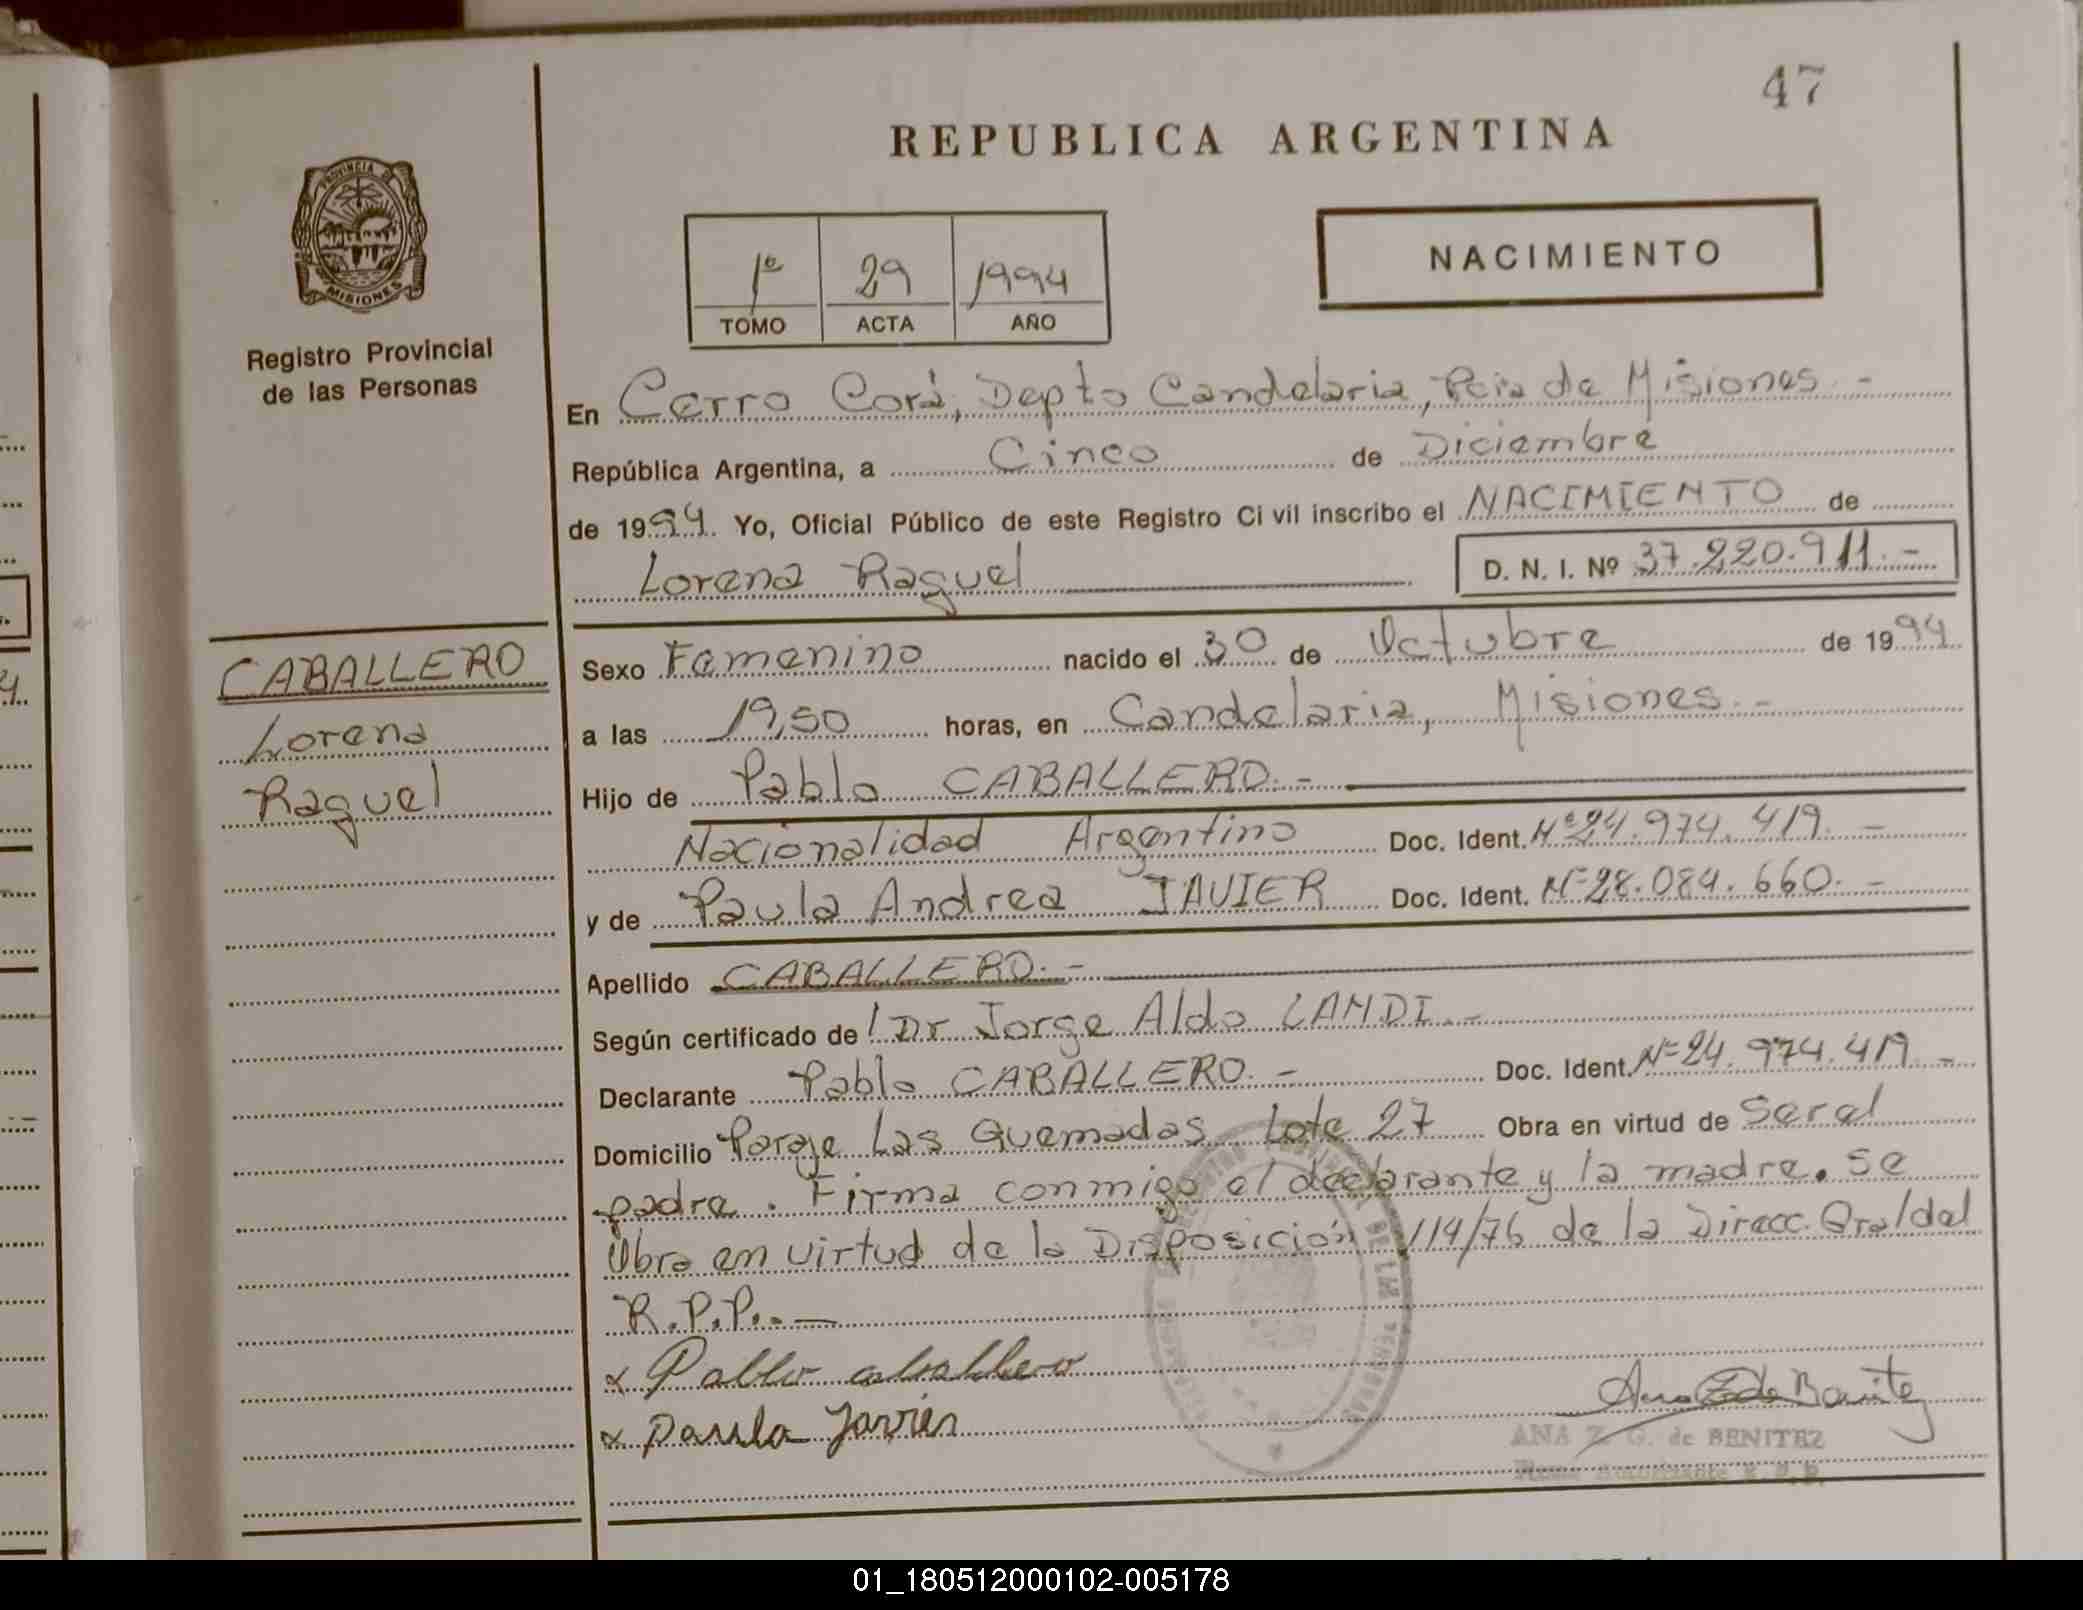 47
REPUBLICA ARGENTINA
PROVINCIA DE
MISIONES
Registro Provincial
de las Personas
1º 29 1994
TOMO ACTA AÑO
NACIMIENTO
En Cerro Corá, Depto Candelaria, Pcia de Misiones.-
República Argentina, a Cinco de Diciembre
de 1994. Yo, Oficial Público de este Registro Ci vil inscribo el NACIMIENTO de
Lorena Raquel D. N. I. Nº 37.220.911.-
CABALLERO
Lorena
Raquel
Sexo Femenino nacido el 30 de Octubre de 1994
a las 19,50 horas, en Candelaria, Misiones.-
Hijo de Pablo CABALLERO.-
Nacionalidad Argentino Doc. Ident. Nº 24.974.419.-
y de Paula Andrea JAVIER Doc. Ident. Nº 28.084.660.-
Apellido CABALLERO.-
Según certificado de Dr Jorge Aldo LANDI.-
Declarante Pablo CABALLERO.- Doc. Ident. Nº 24.974.419.-
Domicilio Paraje Las Quemadas Lote 27 Obra en virtud de Ser el
padre. Firma conmigo el declarante y la madre. Se
Obra en virtud de la Disposición 114/76 de la Direcc. Gral del
R.P.P..-
x Pablo caballero
x Paula Javier
ANA Z. G. de BENITEZ
01_180512000102-005178